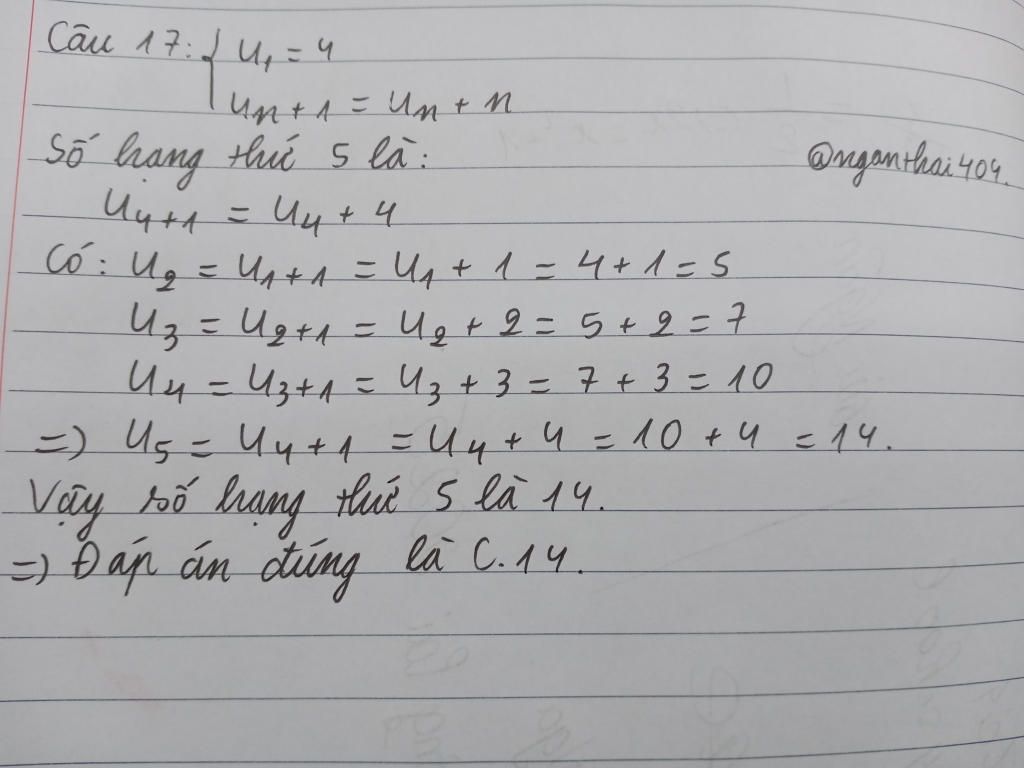 Câu 17: { u₁ = 4
uₙ + 1 = uₙ + n
Số hạng thứ 5 là:
@nganthai404.
u₄₊₁ = u₄ + 4
Có: u₂ = u₁₊₁ = u₁ + 1 = 4 + 1 = 5
u₃ = u₂₊₁ = u₂ + 2 = 5 + 2 = 7
u₄ = u₃₊₁ = u₃ + 3 = 7 + 3 = 10
=) u₅ = u₄₊₁ = u₄ + 4 = 10 + 4 = 14.
Vậy số hạng thứ 5 là 14.
=) Đáp án đúng là C. 14.